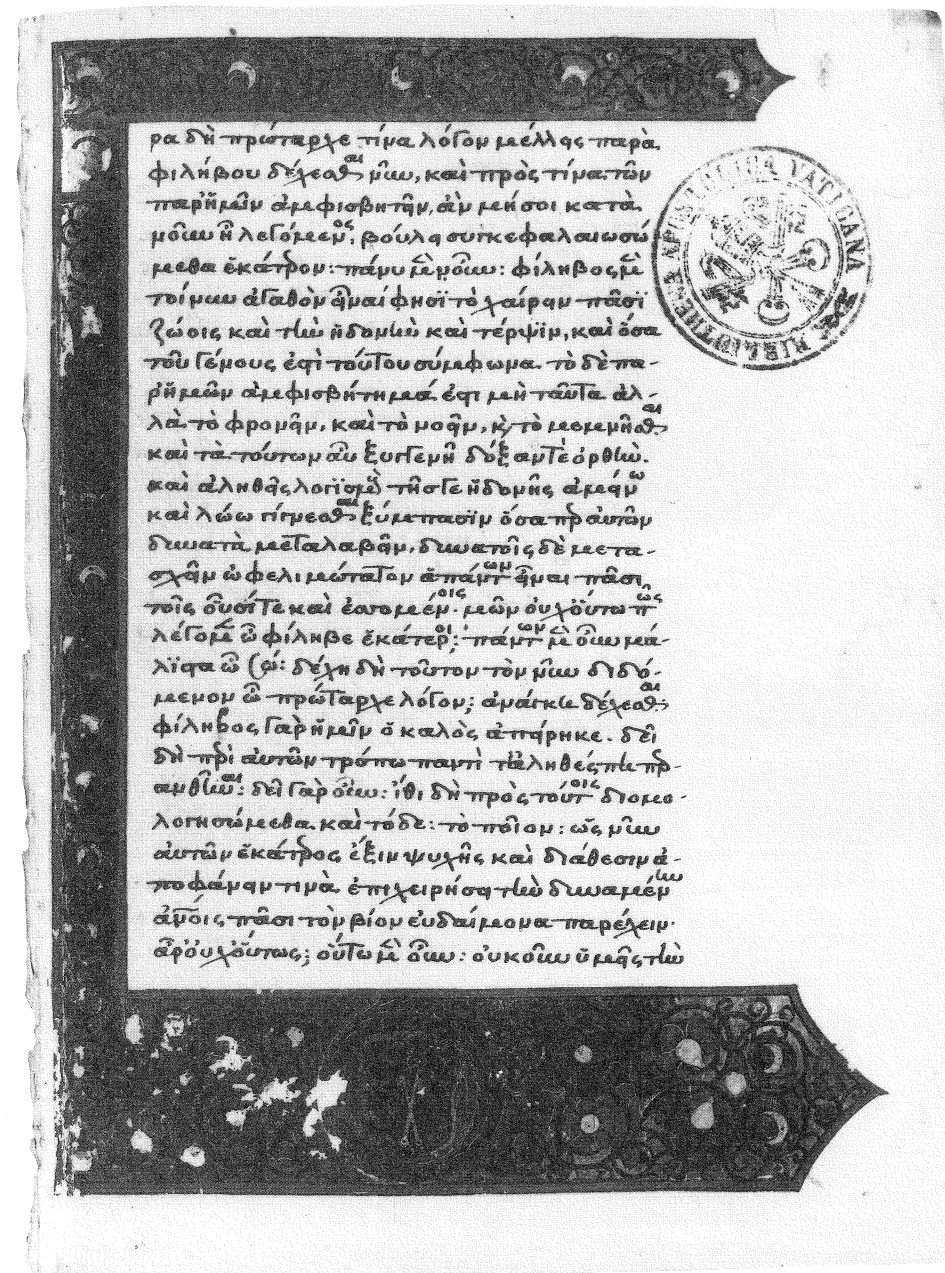 ρα δὴ πρώταρχε τίνα λόγον μέλλεις παρὰ
φιλήβου δέχεσθαι νῦν, καὶ πρὸς τίνα τῶν
παρ' ἡμῖν ἀμφισβητεῖν, ἂν μή σοι κατὰ
νοῦν ἢ λεγόμενος, βούλει συγκεφαλαιωσώ
μεθα ἑκάτερον: πάνυ μὲν οὖν: φίληβος μὲν
τοίνυν ἀγαθὸν εἶναί φησϊ τὸ χαίρειν πᾶσϊ
ζώοις καὶ τὴν ἡδονὴν καὶ τέρψϊν, καὶ ὅσα
τοῦ γένους ἐστὶ τούτου σύμφωνα. τὸ δὲ πα-
ρ' ἡμῶν ἀμφισβήτημά ἐστι μὴ ταῦτα ἀλ-
λὰ τὸ φρονεῖν, καὶ τὸ νοεῖν, κ τὸ μεμνῆσθαι
καὶ τὰ τούτων αὖ ξυγγενῆ δόξαν τε ὀρθὴν.
καὶ ἀληθεῖς λογϊσμοὺς τῆς γε ἡδονῆς ἀμείνω
καὶ λώω γίγνεσθαι ξύμπασϊν ὅσα περ αὐτῶν
δυνατὰ μεταλαβεῖν, δυνατοῖς δὲ μετα-
σχεῖν ὠφελιμώτατον ἁπάντων εἶναι πᾶσι
τοῖς οὖσί τε καὶ ἐσομένοις. μῶν οὐχ οὕτω πως
λέγομεν ὦ φίληβε ἑκάτεροι; πάντων μὲν οὖν μά-
λϊστα ὦ σώ: δέχῃ δὴ τοῦτον τὸν νῦν διδό-
μενον ὦ πρώταρχε λόγον; ἀνάγκη δέχεσθαι
φίληβος γὰρ ἡμῖν ὁ καλὸς ἀπείρηκε. δεῖ
δὴ περὶ αὐτῶν τρόπω παντὶ τἀληθές πη περ-
ανθῆναι: δεῖ γὰρ οὖν: ἴθι δὴ πρὸς τούτοις διομο-
λογησώμεθα καὶ τόδε: τὸ ποῖον: ὡς νῦν
αὐτῶν ἑκάτερος ἕξιν ψυχῆς καὶ διάθεσιν ἀ-
ποφαίνειν τινὰ ἐπιχειρήσει τὴν δυναμένην
ἀνοις πᾶσι τὸν βίον εὐδαίμονα παρέχειν.
ἆρ' οὐχ οὕτως; οὕτω μὲν οὖν: οὐκοῦν ὑμεῖς τὴν
BIBLIOTHECA APOSTOLICA VATICANA